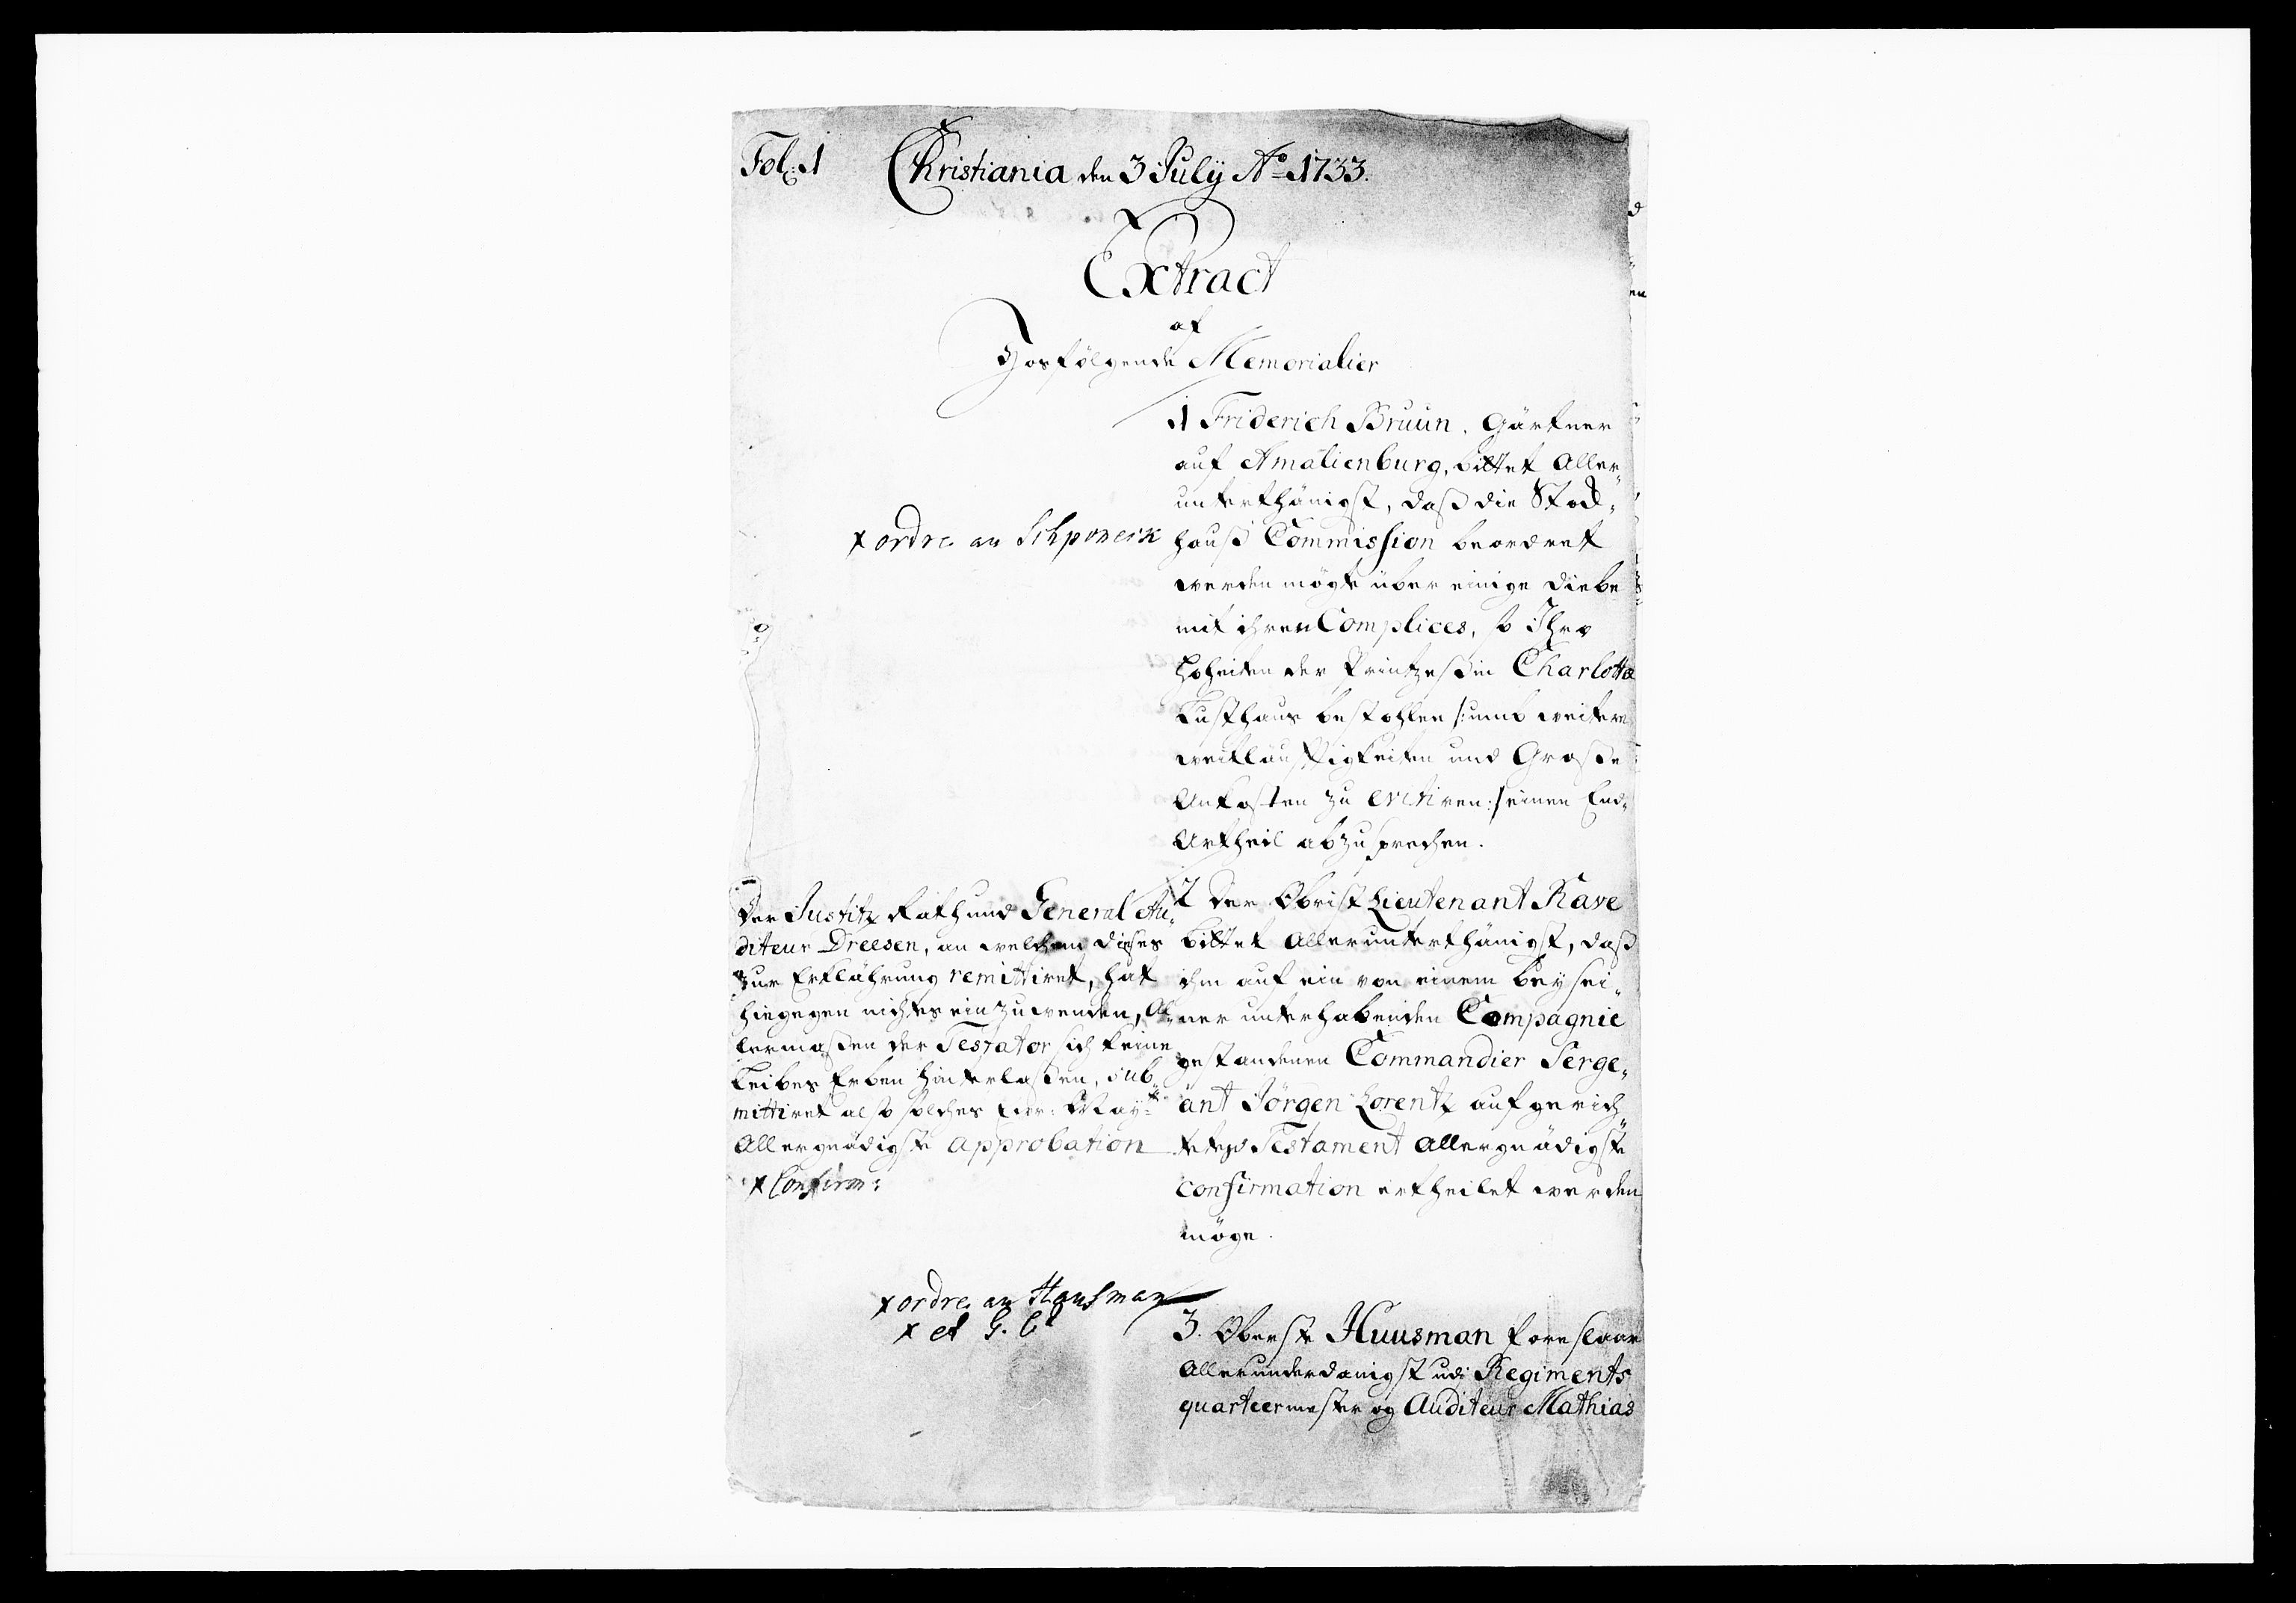 Fol: 1
Christiania den 3 July Aō 1733.
Extract
af
Hosfölgende Memorialier
1 Friderich Bruun, Gärtner
auf Amalienburg, bittet Aller„
unterthänigst, daß die Stock„
hauß Commission beordret
werden mögte über einige Diebe
mit ihren Complices, so Ihro
Hoheiten der Printzeßin Charlotta
Lusthaus bestohlen /: umb weitere
weitläufftigkeiten und Große
Unkosten zu evitiren :/ einen End„
Urtheil abzusprechen.
x ordre an Schponeck
2 Der Obrist Lieutenant Rave
bittet Allerunterthänigst, daß
ihm auf ein von einem bey sei„
ner unterhabenden Compagnie
gestandenen Commandier Serge„
ant Jörgen Lorentz aufgerich„
tetes Testament Allergnädigste
confirmation ertheilet werden
möge.
Der Justitz Rath und General Au„
diteur Dreesen, an welchem dieses
zur Erklährung remittiret, hat
hiegegen nichtes ein zu wenden, Al„
lermaßen der Testator sich keine
Leibes Erben hinterlaßen, sub„
mittiret also solches Eur: May:
Allergnädigste approbation
x Confirm:
x ordre an Hausman
x et G. C
3. Oberste Huusman foreslaar
Allerunderdanigst udi Regiments
quarteermester og Auditeur Mathias